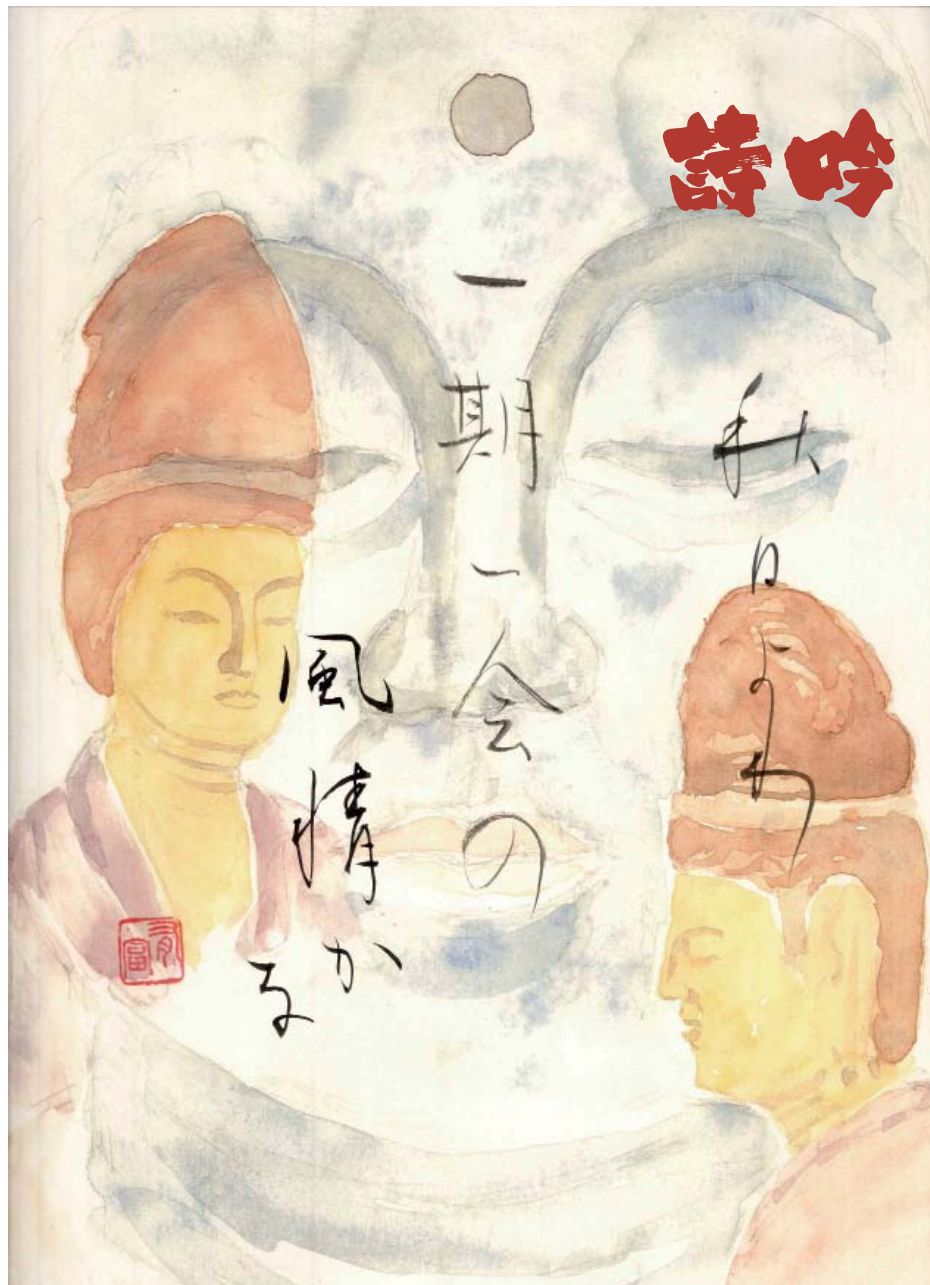 詩吟
秋日より
一期一会の
風情かな